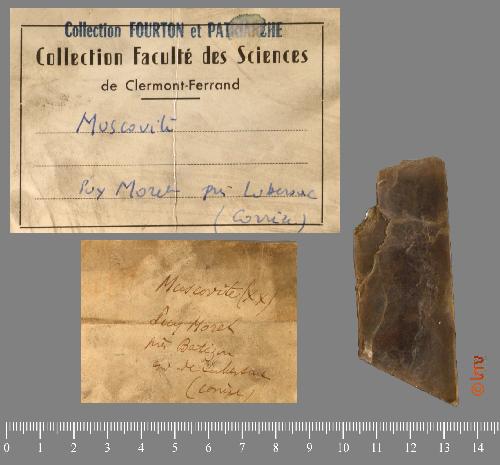 Collection FOURTON et PATRIARCHE
Collection Faculté des Sciences
de Clermont-Ferrand
Muscovite
Puy Moret près Lubersac
(Corrèze)
Muscovite (XX)
Puy Moret
près
de Lubersac
(Corrèze)
0 1 2 3 4 5 6 7 8 9 10 11 12 13 14